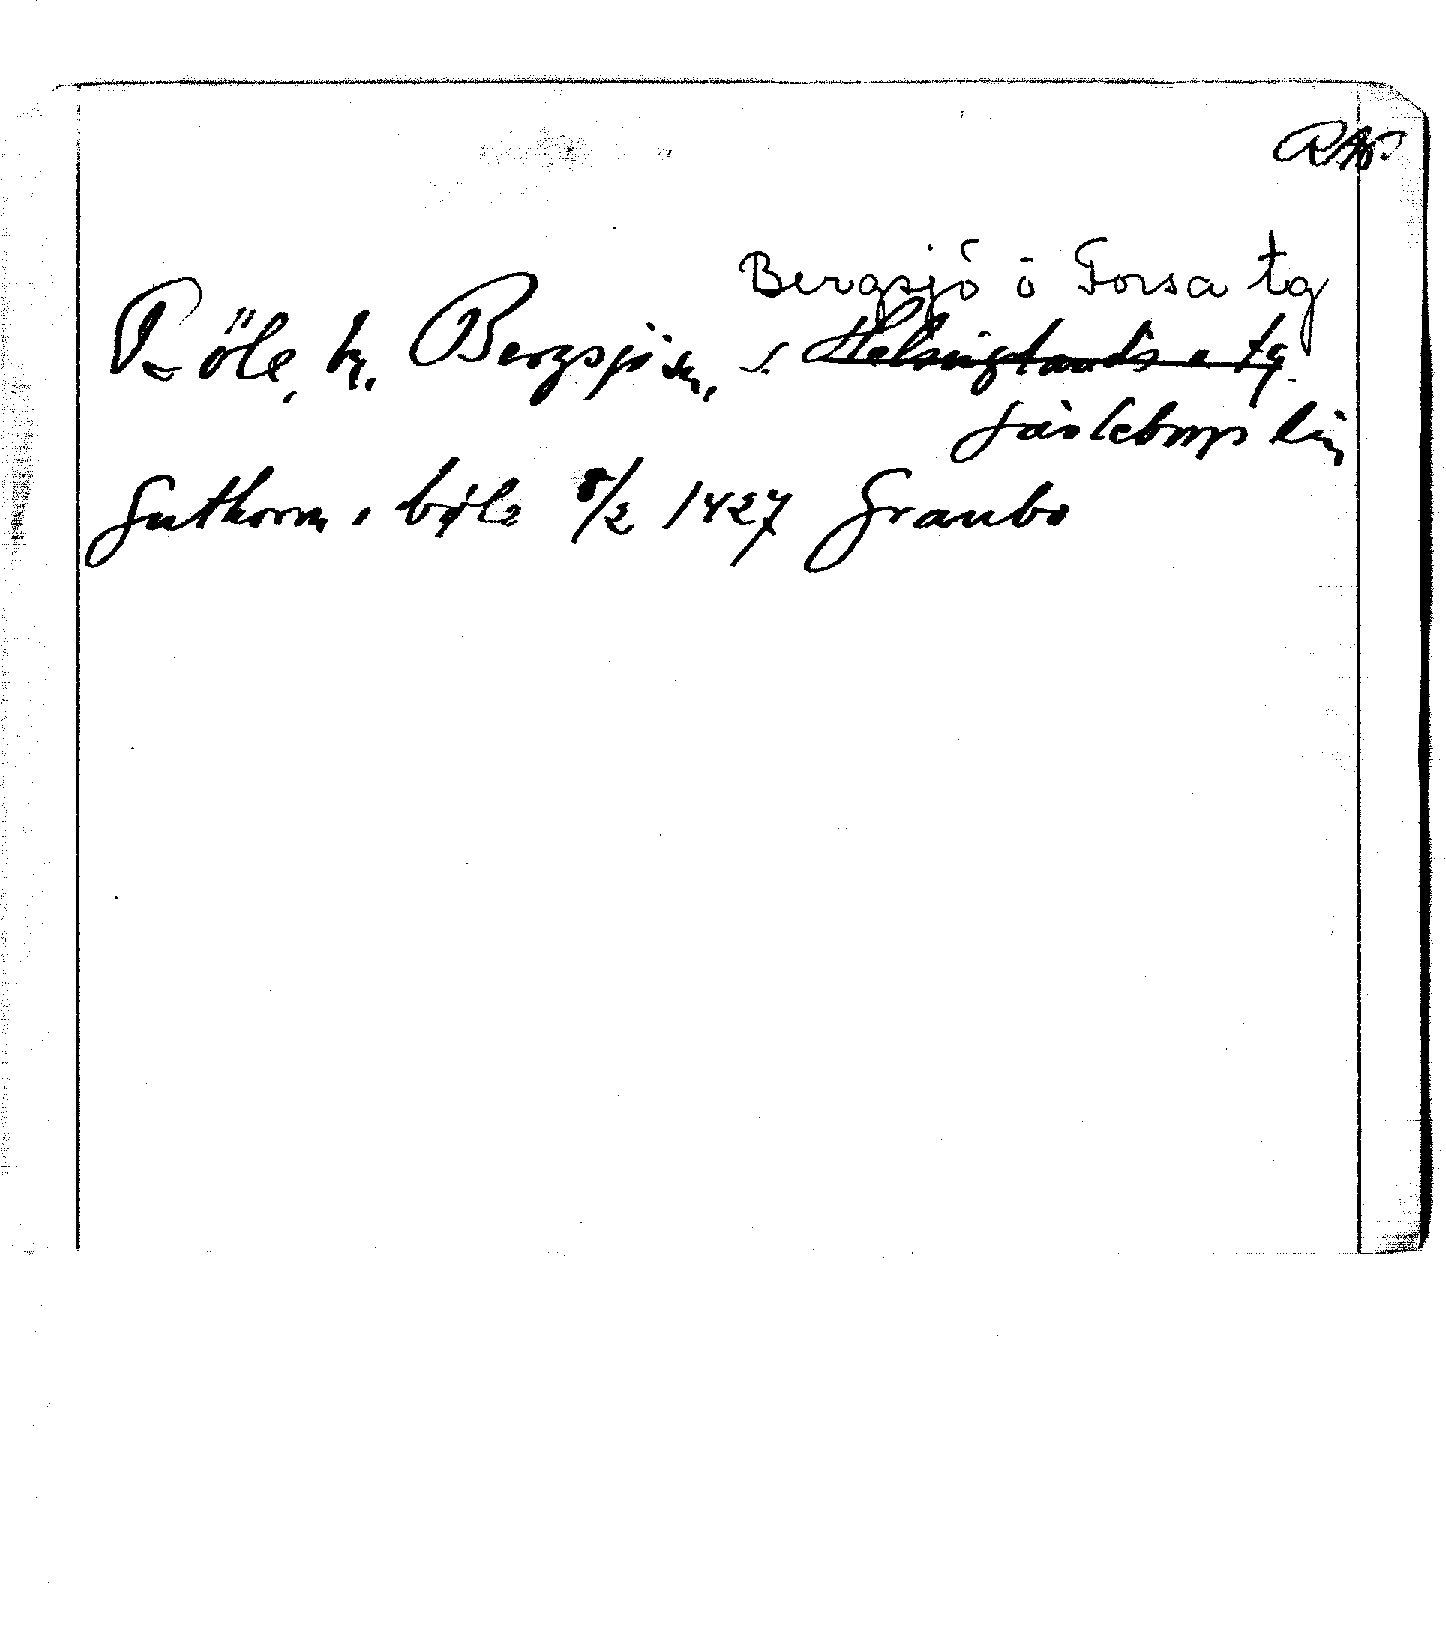 RAp.
Bergsjö o Forsa tg
Böle, by, Bergsjö sn, Helsinglands n tg
Gävleborgs län
Guthorm i bøle 8/2 1427 Graubo